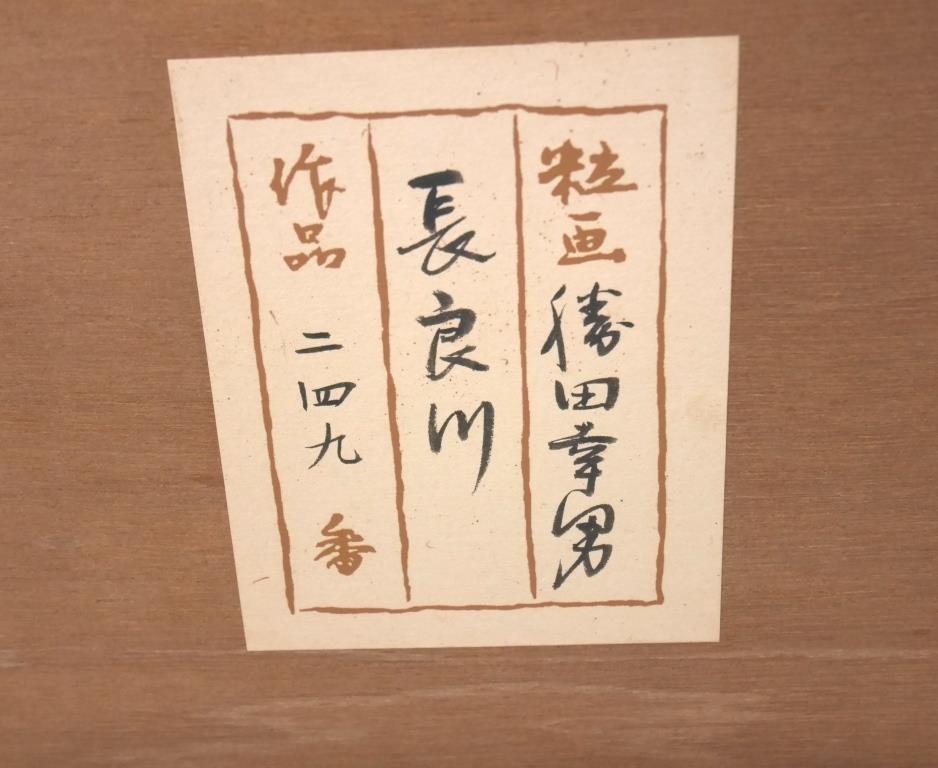 粒画 勝田幸男
長良川
作品 二四九 番